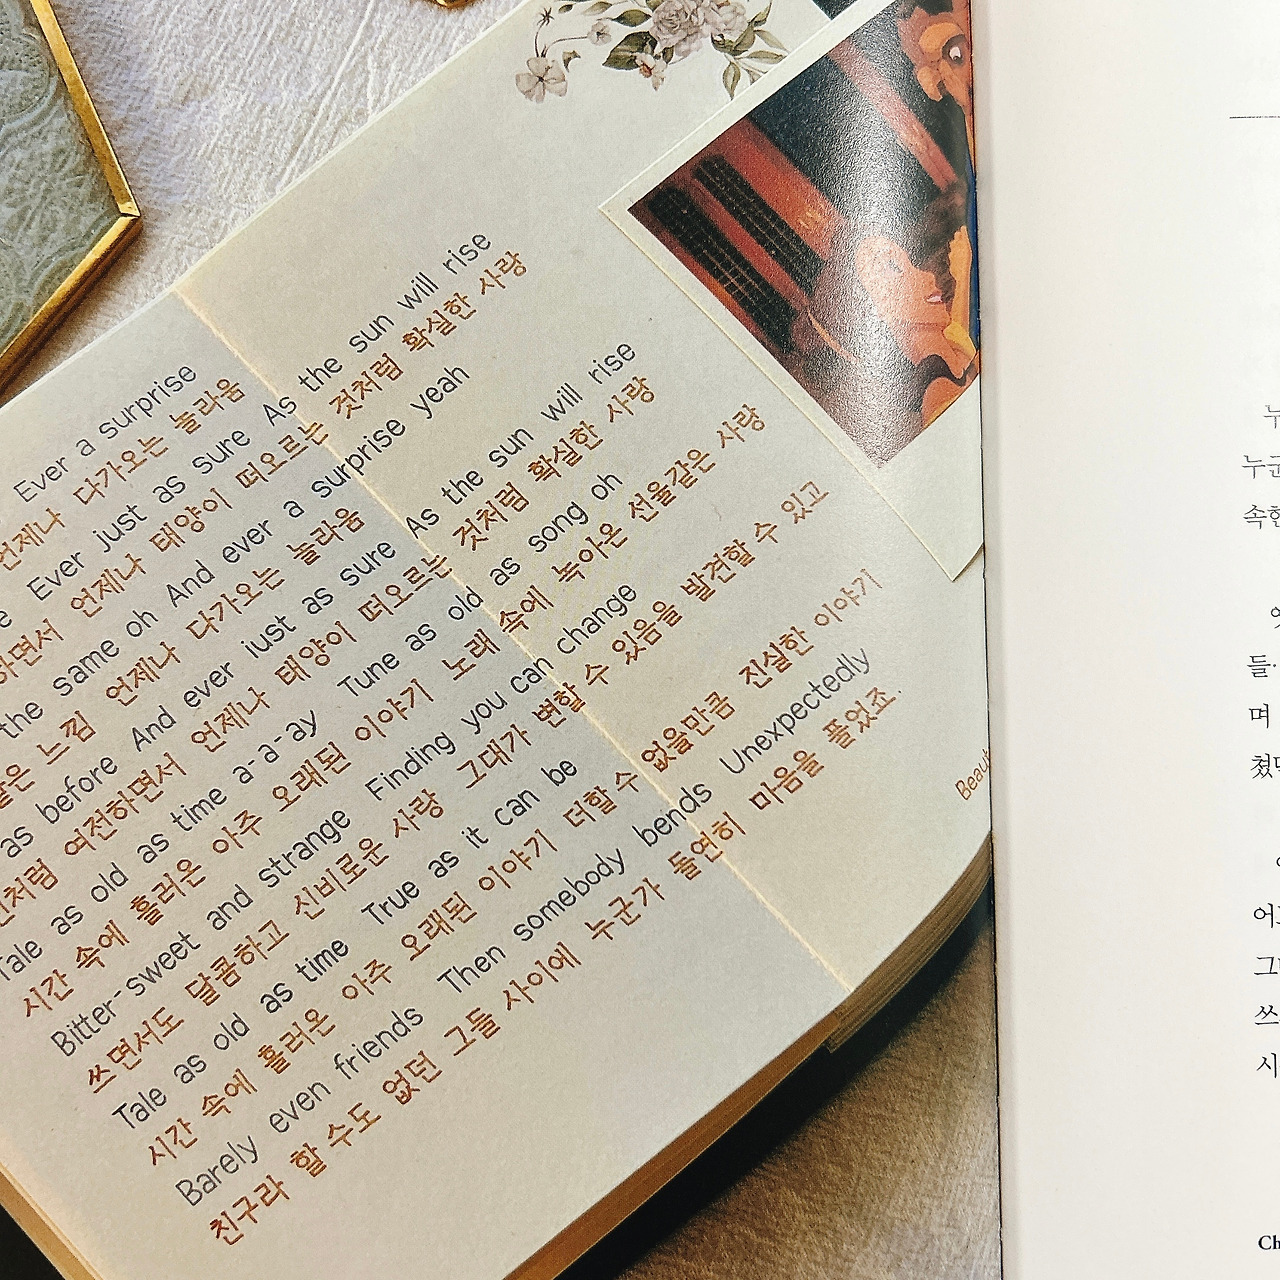 Ever a surprise
언제나 다가오는 놀라움
Ever just as sure As the sun will rise
하면서 언제나 태양이 떠오르는 것처럼 확실한 사랑
the same oh And ever a surprise yeah
같은 느낌 언제나 다가오는 놀라움
as before And ever just as sure As the sun will rise
처럼 여전하면서 언제나 태양이 떠오르는 것처럼 확실한 사랑
Tale as old as time a-a-ay Tune as old as song oh
시간 속에 흘러온 아주 오래된 이야기 노래 속에 녹아온 선율같은 사랑
Bitter-sweet and strange Finding you can change
쓰면서도 달콤하고 신비로운 사랑 그대가 변할 수 있음을 발견할 수 있고
Tale as old as time True as it can be
시간 속에 흘러온 아주 오래된 이야기 더할 수 없을만큼 진실한 이야기
Barely even friends Then somebody bends Unexpectedly
친구라 할 수도 없던 그들 사이에 누군가 돌연히 마음을 풀었죠.
누군
속한
들·
며
쳤던
그
쓰
시
Ch